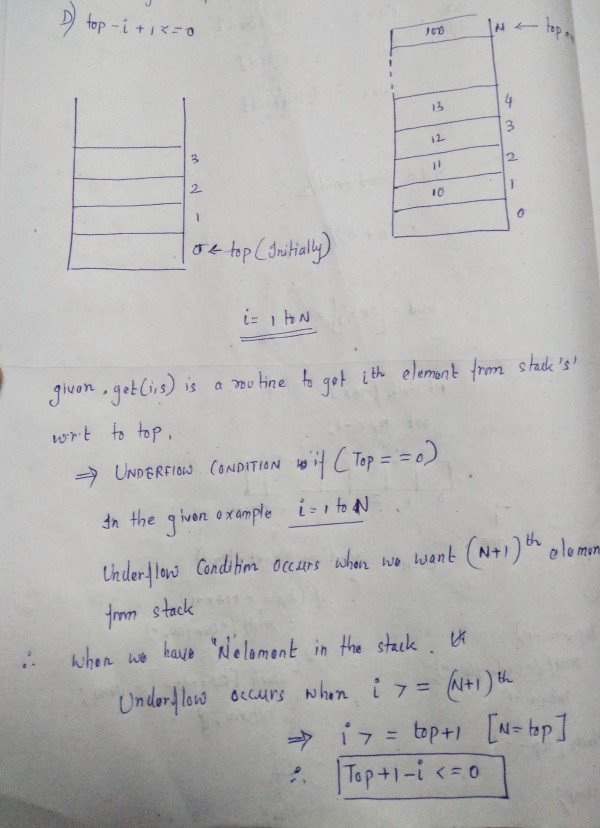 D) top-i+1<=0
100 N ← top
13 4
12 3
11 2
10 1
0
3
2
1
0 ← top (Initially)
i = 1 to N
given, get(i,s) is a routine to get ith element from stack 's'
w.r.t to top.
⇒ UNDERFLOW CONDITION if (Top == 0)
In the given example i = 1 to N
Underflow Condition occurs when we want (N+1)th elemen
from stack
∴ When we have "N" element in the stack.
Underflow occurs when i >= (N+1)th
⇒ i >= top+1 [N=top]
∴ Top+1-i <= 0